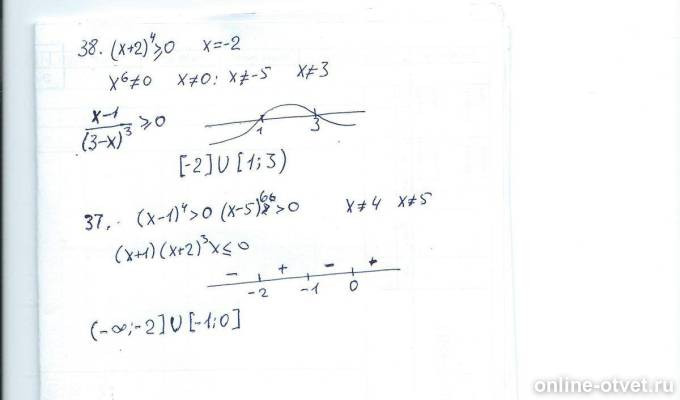 38. (x+2)⁴≥0 x=-2
x⁶≠0 x≠0; x≠-5 x≠3
x-1
(3-x)³ ≥0
1 3
[-2]∪[1;3)
37. (x-1)⁴>0 (x-5)⁶⁶>0 x≠4 x≠5
(x+1)(x+2)³x≤0
- + - +
-2 -1 0
(-∞;-2]∪[-1;0]
online-otvet.ru